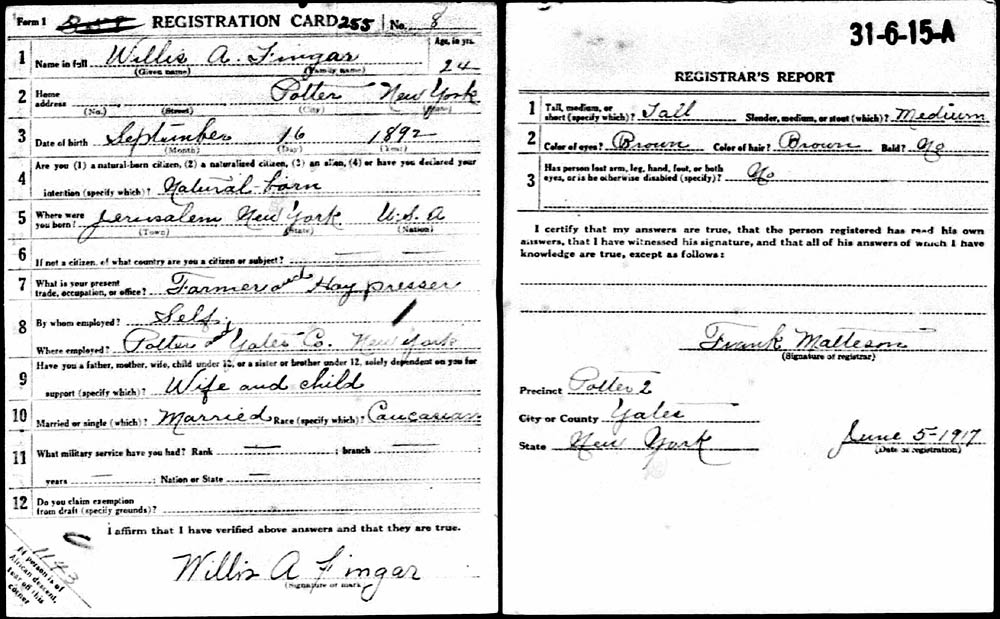 Form 1 REGISTRATION CARD 255 No. 8
1 Name in full Willis A. Fingar Age, in yrs. 24
(Given name) (Family name)
2 Home address Potter New York
(No.) (Street) (City) (State)
3 Date of birth September 16 1892
(Month) (Day) (Year)
4 Are you (1) a natural-born citizen, (2) a naturalized citizen, (3) an alien, (4) or have you declared your
intention (specify which)? Natural-born
5 Where were you born? Jerusalem New York U.S.A
(Town) (State) (Nation)
6 If not a citizen, of what country are you a citizen or subject?
7 What is your present trade, occupation, or office? Farmer and Hay presser
8 By whom employed? Self
Where employed? Potter Yates Co. New York
9 Have you a father, mother, wife, child under 12, or a sister or brother under 12, solely dependent on you for
support (specify which)? Wife and child
10 Married or single (which)? Married Race (specify which)? Caucasian
11 What military service have you had? Rank ; branch
years ; Nation or State
12 Do you claim exemption from draft (specify grounds)?
I affirm that I have verified above answers and that they are true.
Willis A Fingar
(Signature or mark)
1143
If person is of
African descent,
tear off this
corner
31-6-15-A
REGISTRAR'S REPORT
1 Tall, medium, or short (specify which)? Tall Slender, medium, or stout (which)? Medium
2 Color of eyes? Brown Color of hair? Brown Bald? No
3 Has person lost arm, leg, hand, foot, or both eyes, or is he otherwise disabled (specify)? No
I certify that my answers are true, that the person registered has read his own
answers, that I have witnessed his signature, and that all of his answers of which I have
knowledge are true, except as follows:
Frank Matteson
(Signature of registrar)
Precinct Potter 2
City or County Yates
State New York June 5-1917
(Date of registration)